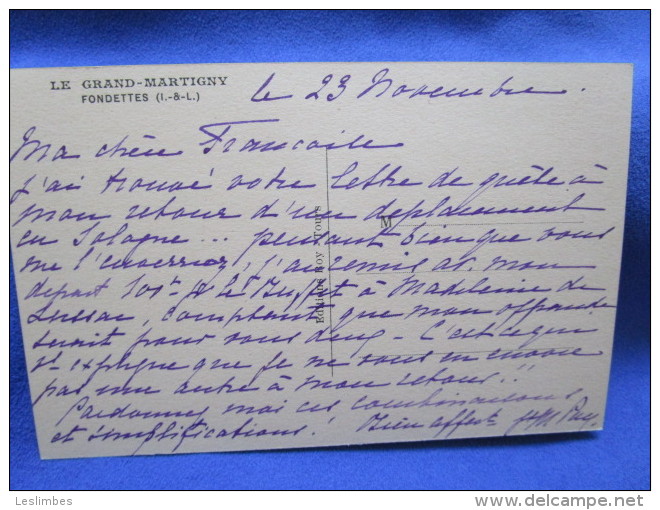 LE GRAND-MARTIGNY
FONDETTES (I.-&-L.)
le 23 Novembre.
Ma chère Françoise
j'ai trouvé votre lettre de quête à
mon retour d'un deplacement
en Sologne ... pensant bien que vous
me l'enverriez, j'ai remis av. mon
depart à Madeleine de
Lussac, comptant que mon offrande
serait pour vous deux - C'est ce qui
explique que je ne vous en envoie
pas une autre à mon retour!!
Pardonnez moi ces combinaisons
et simplifications! Bien affect
M
Editions Roy - Tours
Leslimbes
delcampe.net